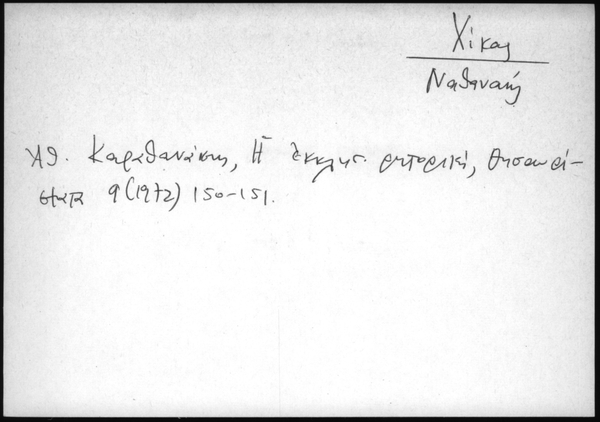 Χίκας
Ναθαναήλ
Ἀθ. Καραθανάσης, Ἡ ἐκκλησ. ρητορική, Θησαυρί-
σματα 9 (1972) 150-151.